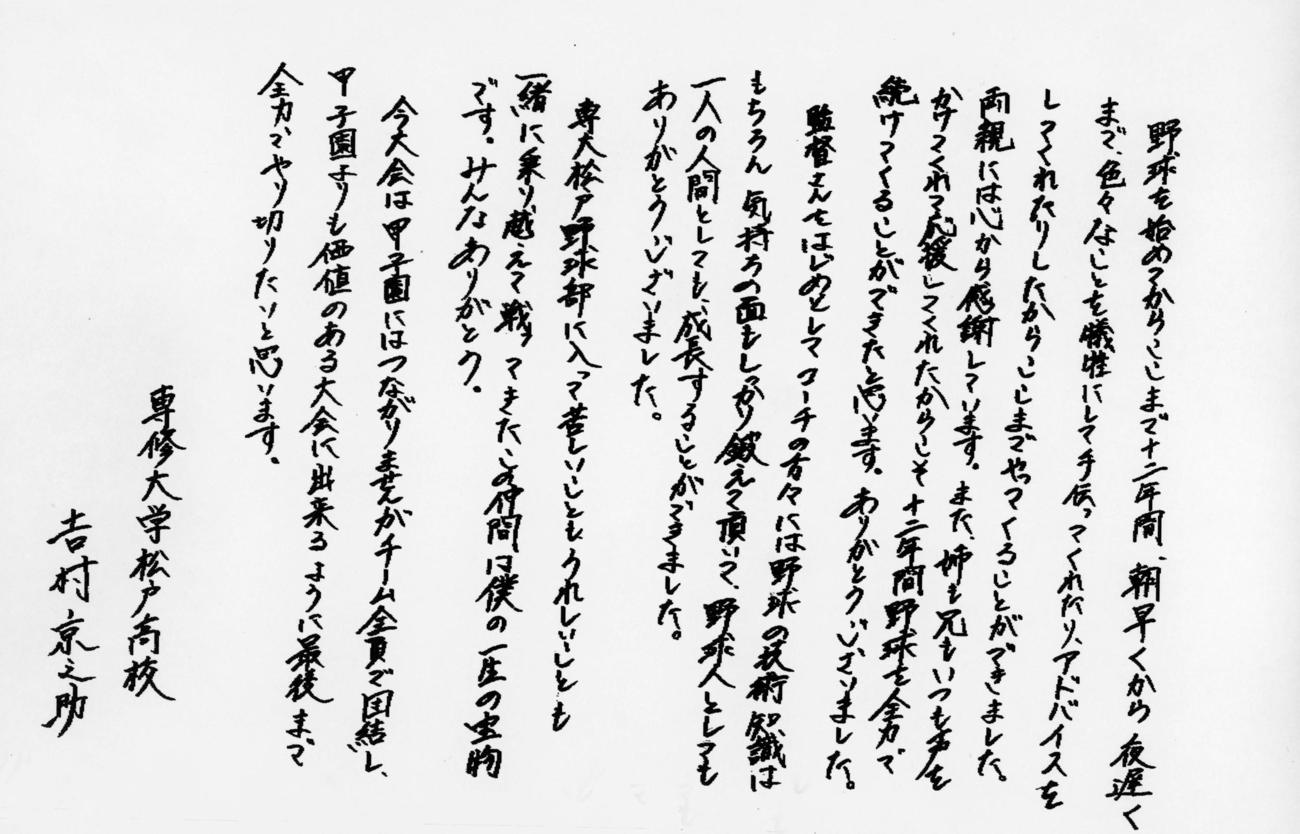 野球を始めてからここまで十二年間、朝早くから夜遅く
まで、色々なことを犠牲にして手伝ってくれたり、アドバイスを
してくれたりしたからここまでやってくることができました。
両親には心から感謝しています。また、姉も兄もいつも声を
かけてくれて応援してくれたからこそ十二年間野球を全力で
続けてくることができたと思います。ありがとうございました。
監督さんをはじめとしてコーチの方々には野球の技術知識は
もちろん気持ちの面もしっかり鍛えて頂いて、野球人としても
一人の人間としても、成長することができました。
ありがとうございました。
専大松戸野球部に入って苦しいこともうれしいことも
一緒に乗り越えて戦ってきたこの仲間は僕の一生の宝物
です。みんなありがとう。
今大会は甲子園にはつながりませんがチーム全員で団結し、
甲子園よりも価値のある大会に出来るように最後まで
全力でやり切りたいと思います。
専修大学松戸高校
吉村京之助